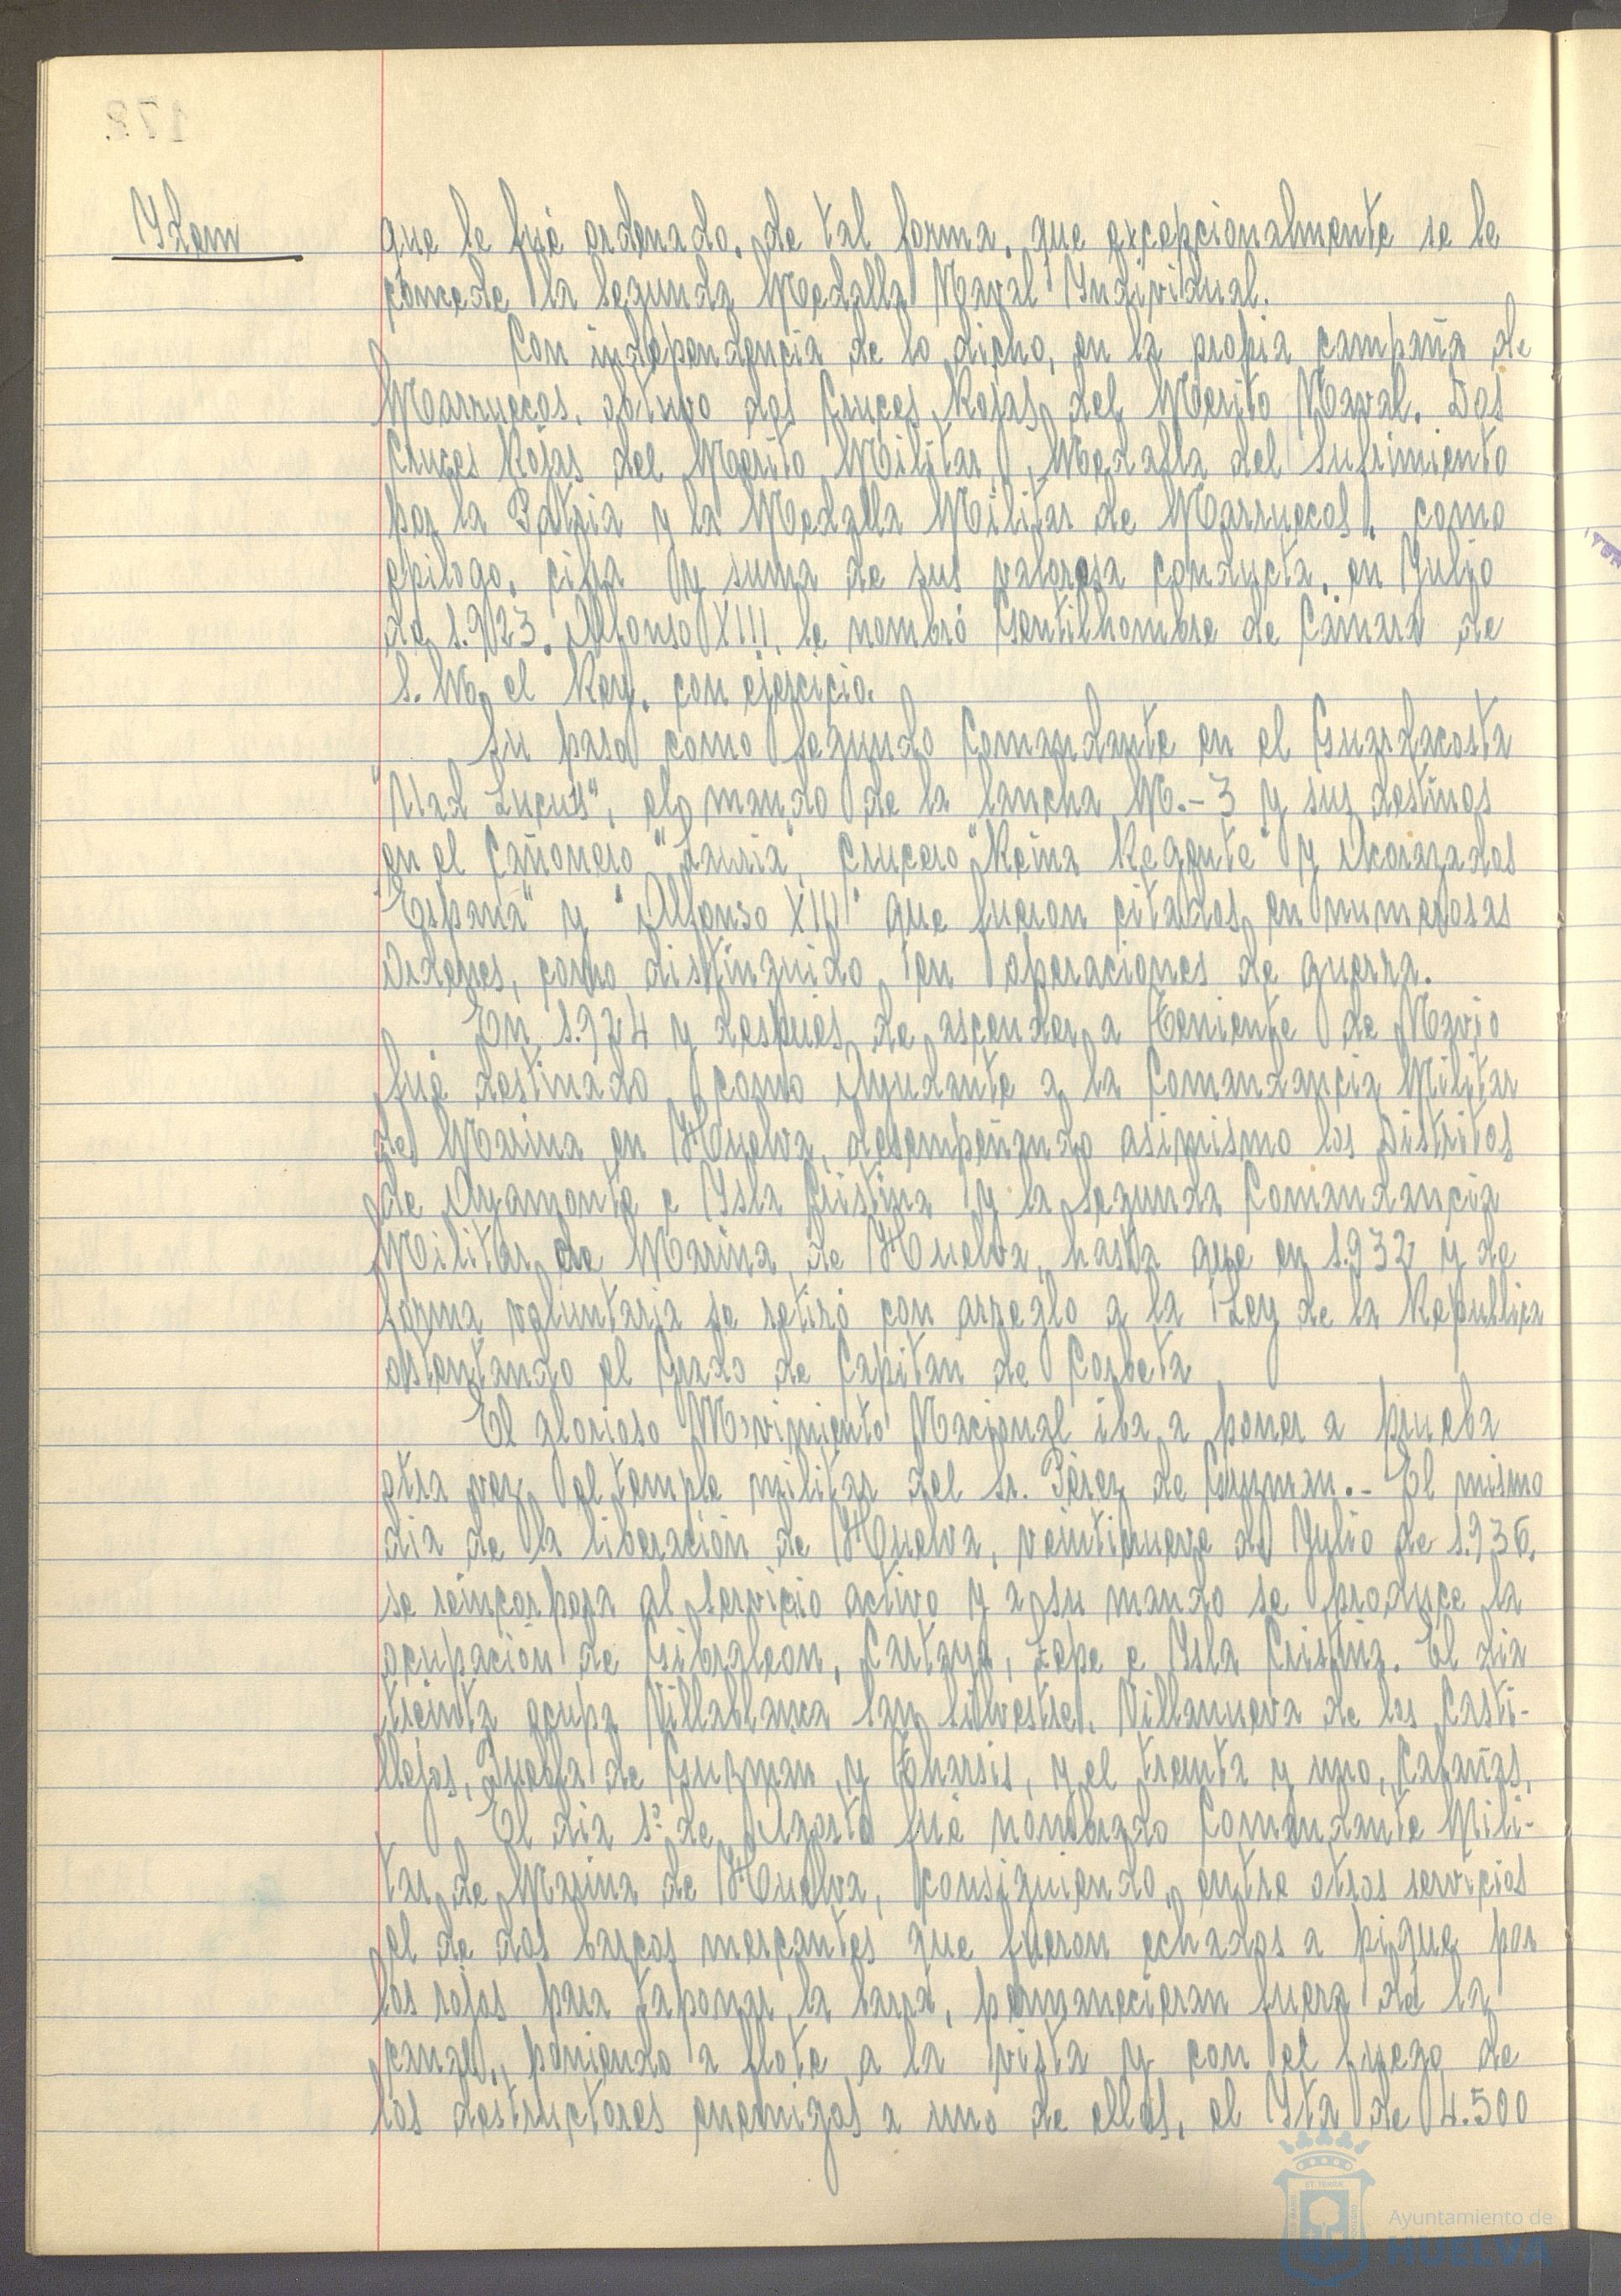 Ydem
que le fué ordenado, de tal forma, que excepcionalmente se le
concede la segunda Medalla Naval Yndividual.
Con independencia de lo dicho, en la propia campaña de
Marruecos, obtuvo dos Cruces Rojas del Merito Naval. Dos
Cruces Rojas del Mérito Militar, Medalla del Sufrimiento
por la Patria y la Medalla Militar de Marruecos, como
epilogo, cifra y suma de sus valerosa conducta, en Julio
de 1.923, Alfonso XIII, le nombró Gentilhombre de Cámara de
S. M. el Rey, con ejercicio.
Su paso como Segundo Comandante en el Guardacosta
"Uad Lucus", el mando de la lancha M.-3 y sus destinos
en el Cañonero "Lauria", Crucero "Reina Regente" y Acorazados
"España" y "Alfonso XIII" que fueron citados en numerosas
Ordenes, como distinguido en operaciones de guerra.
En 1.924 y despues de ascender a Teniente de Navio
fué destinado como Ayudante a la Comandancia Militar
de Marina en Huelva, desempeñando asimismo los Distritos
de Ayamonte e Ysla Cristina y la Segunda Comandancia
Militar de Marina de Huelva, hasta que en 1.932 y de
forma voluntaria se retiró con arreglo a la Ley de la Republica
ostentando el Grado de Capitan de Corbeta
El glorioso Movimiento Nacional iba a poner a prueba
otra vez el temple militar del Sr. Pérez de Guzman.- El mismo
dia de la liberación de Huelva, veintinueve de Julio de 1.936,
se reincorpora al servicio activo y a su mando se produce la
ocupación de Gibraleon, Cartaya, Lepe e Ysla Cristina. El dia
treinta ocupa Villablanca San Silvestre, Villanueva de los Casti-
llejos, Puebla de Guzman y Tharsis, y el treinta y uno, Calañas.
El dia 1º de Agosto fué nombrado Comandante Mili-
tar de Marina de Huelva, consiguiendo, entre otros servicios
el de dos barcos mercantes que fueron echados a pique por
los rojos para taponar la barra, permanecieran fuera de la
canal, poniendo a flote a la vista y con el fuego de
los destructores enemigos a uno de ellos, el Yta de 4.500
172
Ayuntamiento de
HUELVA